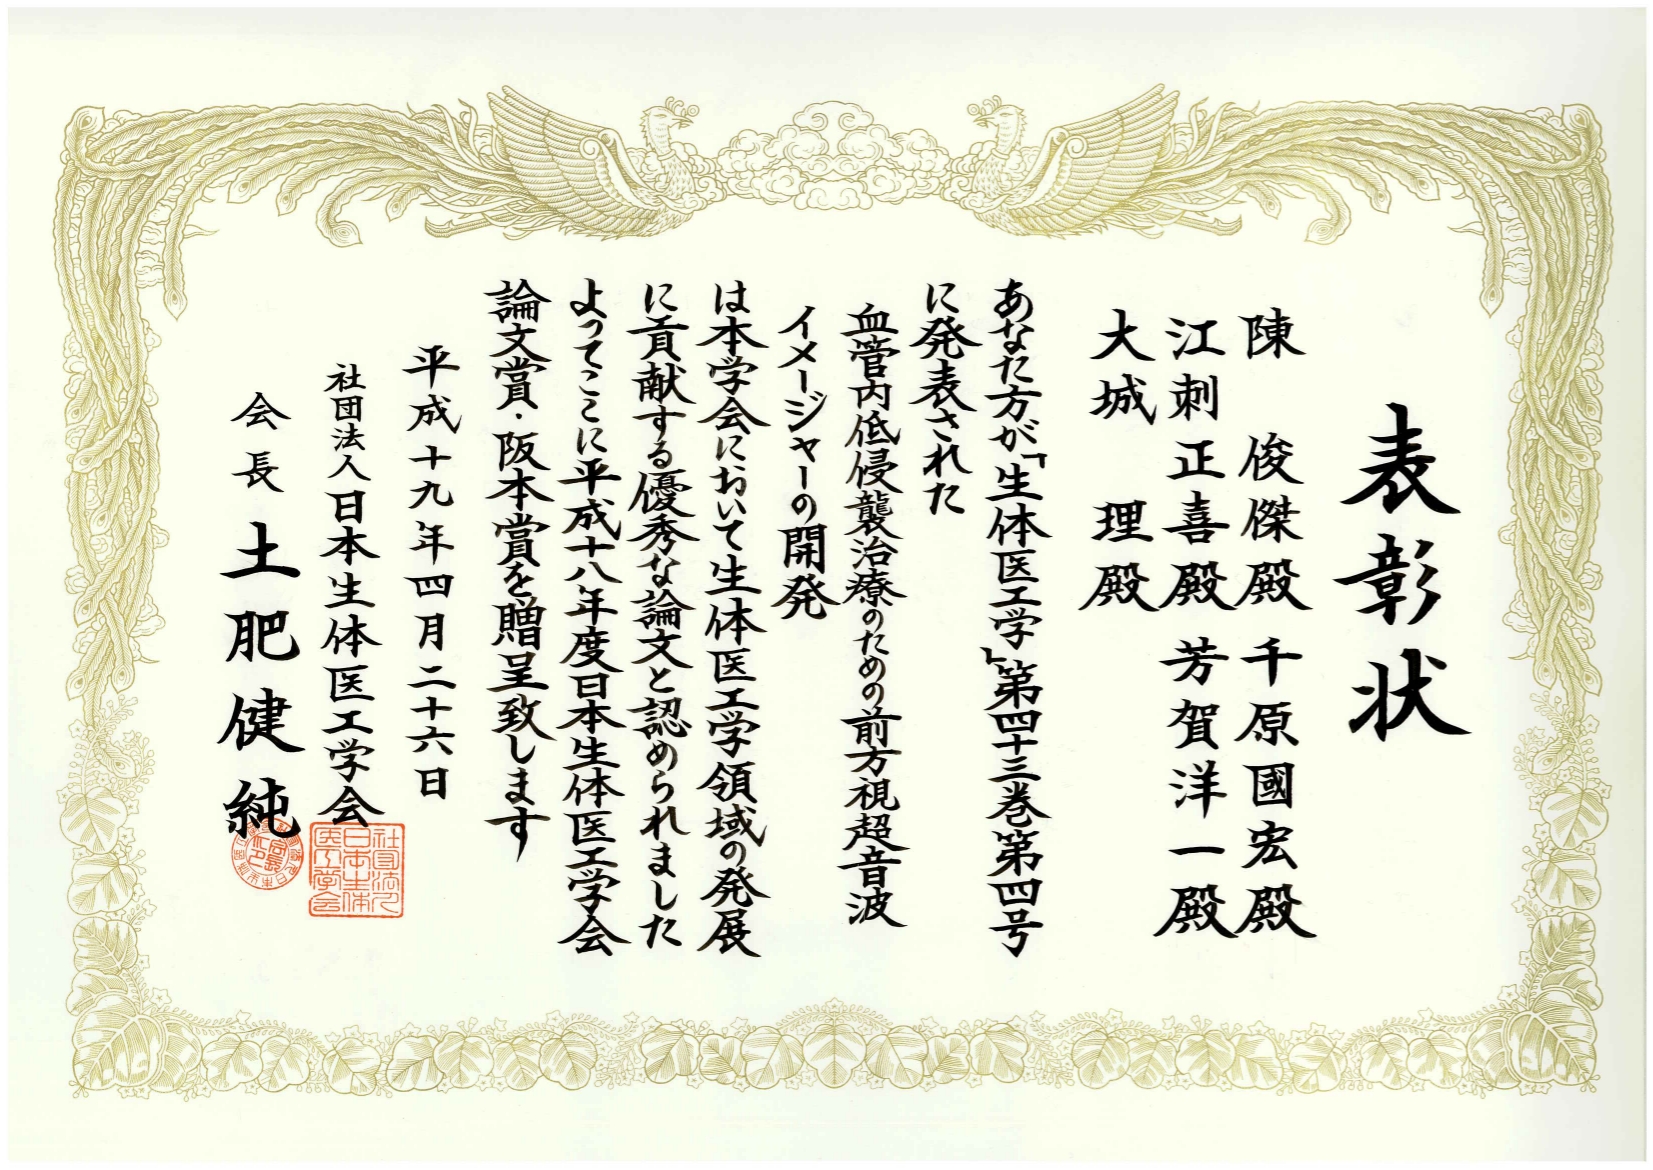 表彰状
陳　俊傑殿　千原國宏殿
江刺正喜殿　芳賀洋一殿
大城　理殿
あなた方が「生体医工学」第四十三巻第四号
に発表された
血管内低侵襲治療のための前方視超音波
イメージャーの開発
は本学会において生体医工学領域の発展
に貢献する優秀な論文と認められました
よってここに平成十八年度日本生体医工学会
論文賞・阪本賞を贈呈致します
平成十九年四月二十六日
社団法人日本生体医工学会
会長　土肥健純
社団法人
日本生体
医工学会